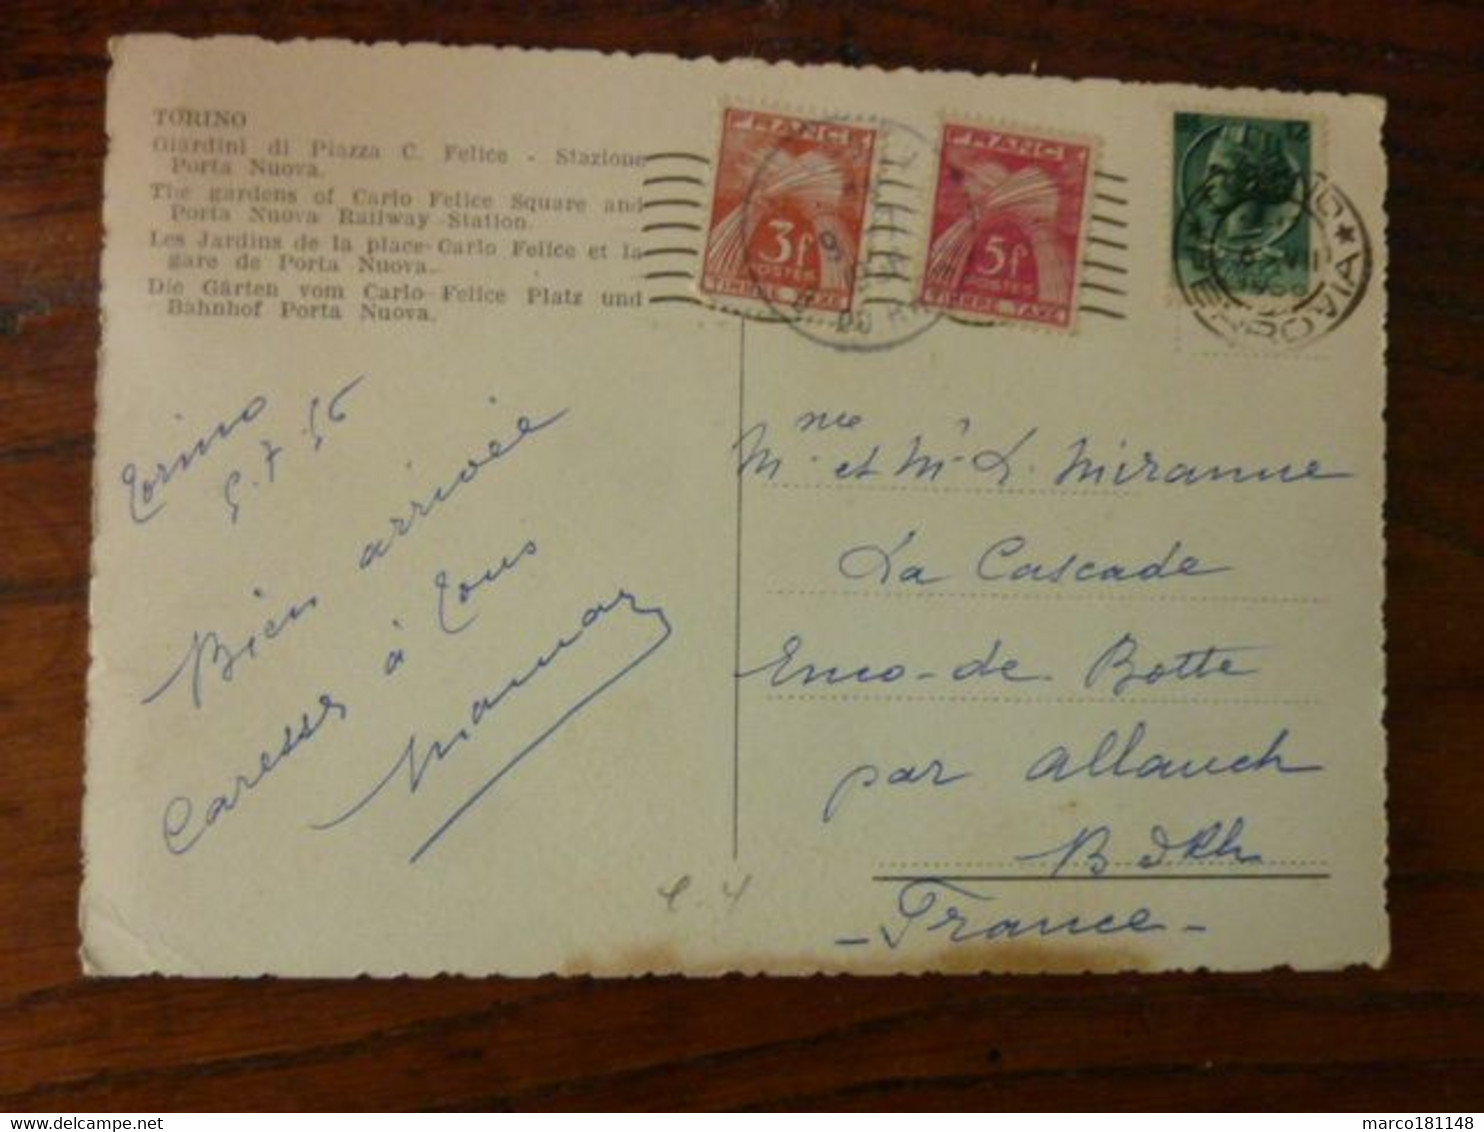 TORINO
Giardini di Piazza C. Felice - Stazione
Porta Nuova.
The gardens of Carlo Felice Square and
Porta Nuova Railway Station.
Les Jardins de la place Carlo Felice et la
gare de Porta Nuova.
Die Gärten vom Carlo Felice Platz und
Bahnhof Porta Nuova.
FRANCE
3f
POSTES
TIMBRE TAXE
FRANCE
5f
POSTES
TIMBRE TAXE
12
FERROVIA
Torino
5.7.56
Bien arrivée
Caresses à tous
Mme et Mr L. Miranne
La Cascade
Enco-de-Botte
par Allauch
B d Rh
- France -
marco181148